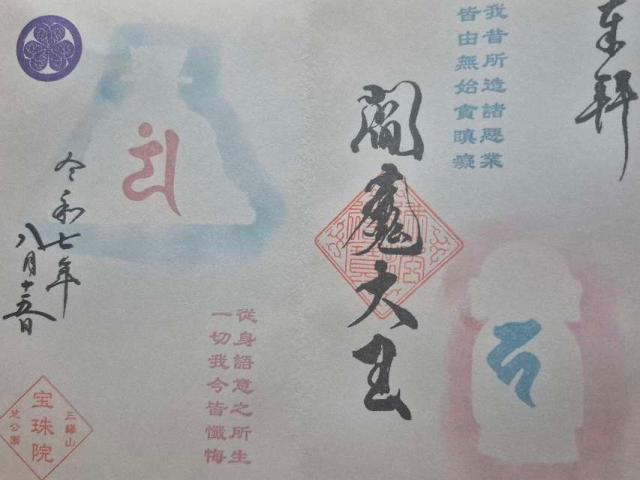 奉拝
我昔所造諸惡業
皆由無始貪瞋癡
閻魔大王
從身語意之所生
一切我今皆懺悔
令和七年
八月十五日
三縁山
宝珠院
芝公園